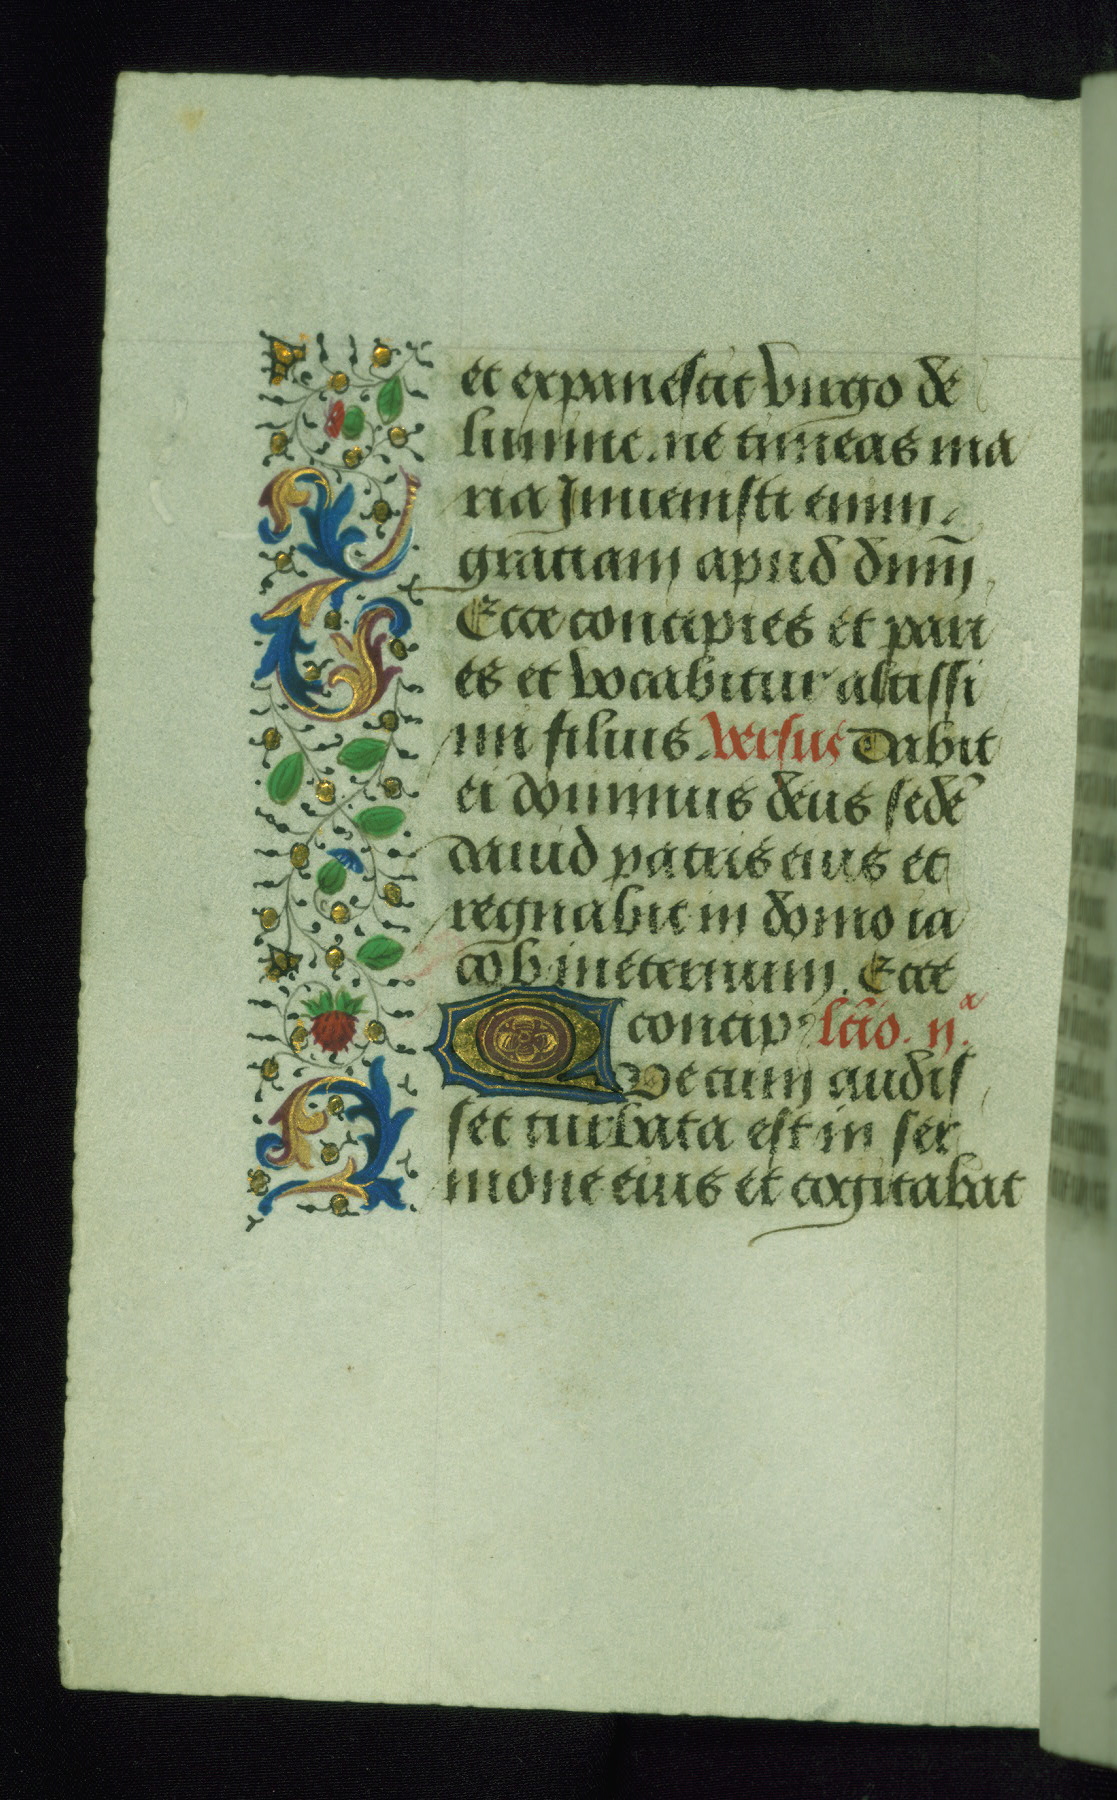 et expanescit virgo de
lumine. ne timeas ma
ria Jnuenisti enim
gratiam apud dnm̄
Ecce concipies et pari
es et vocabitur altissi
mi filius. versus Dabit
ei dominus deus sedē
dauid patris eius et
regnabit in domo ia
cob ineternum. Ecce
concip lc̄io. ijᵃ.
QVe cum audis
set turbata est in ser
mone eius et cogitabat